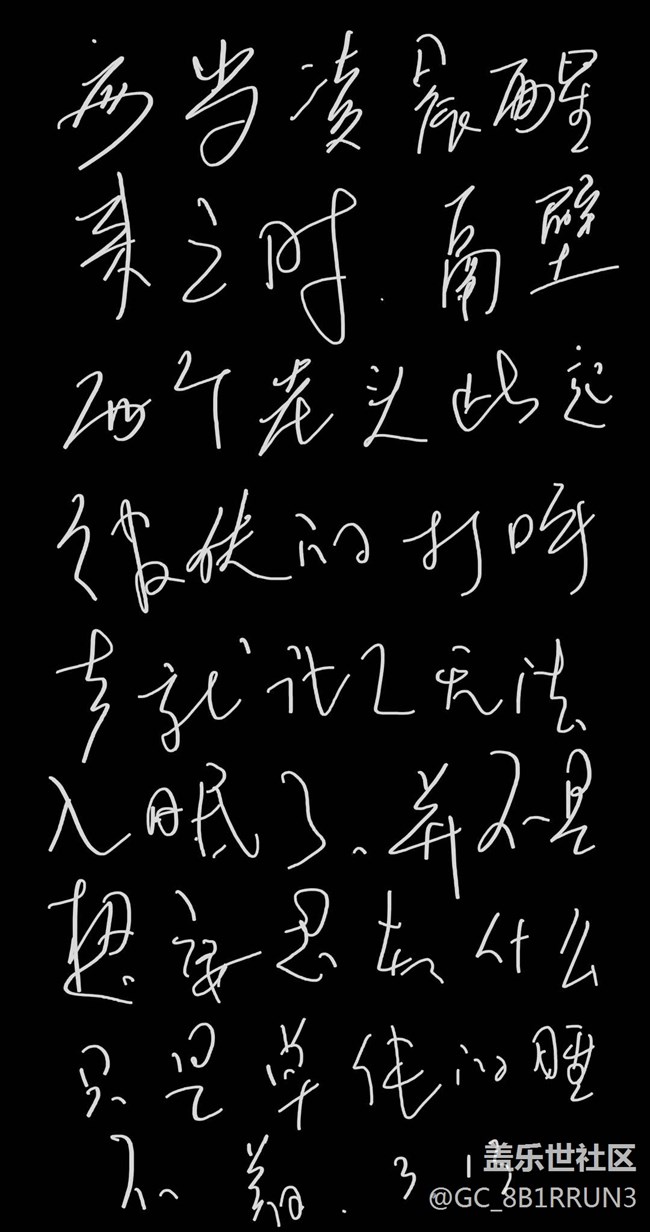 每当凌晨醒
来之时.隔壁
两个老头此起
彼伏的打呼
声就让我无法
入眠了.并不是
想要思考什么
只是单纯的睡
不着. 3.13
盖乐世社区
@GC_8B1RRUN3